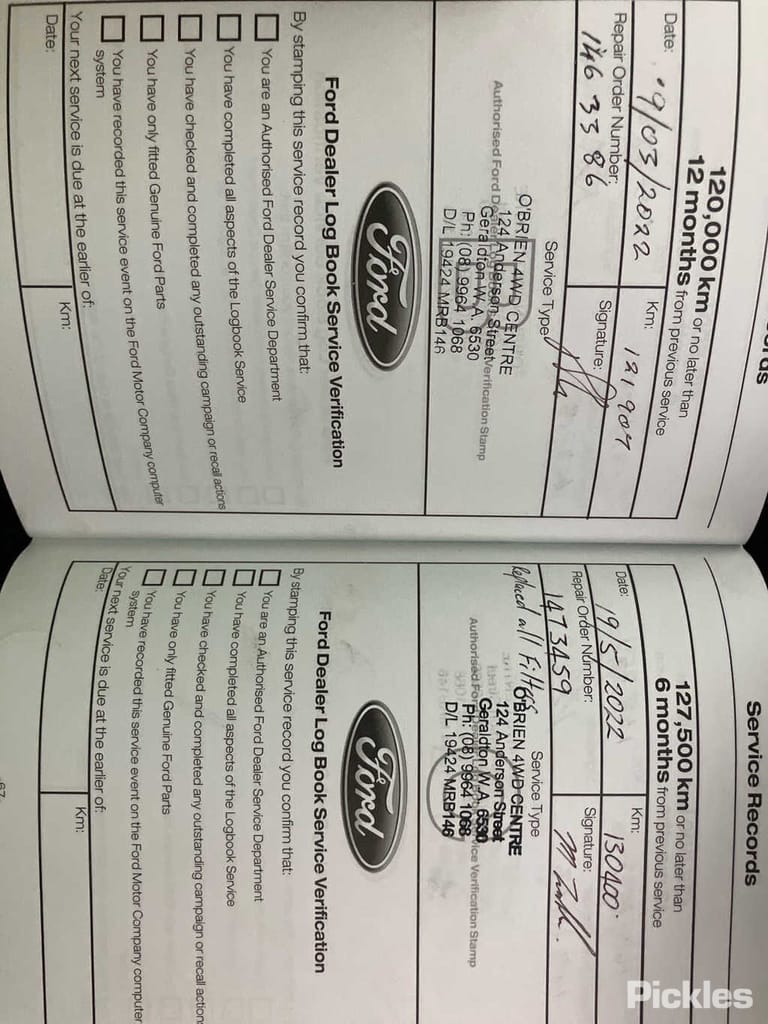 120,000 km or no later than
12 months from previous service
Date: 19/03/2022
Km: 121,907
Repair Order Number:
1463386
Signature:
Service Type
Authorised Ford Dealer Verification Stamp
O'BRIEN 4WD CENTRE
124 Anderson Street
Geraldton W.A. 6530
Ph: (08) 9964 1068
D/L 19424 MRB146
Ford
Ford Dealer Log Book Service Verification
By stamping this service record you confirm that:
You are an Authorised Ford Dealer Service Department
You have completed all aspects of the Logbook Service
You have checked and completed any outstanding campaign or recall actions
You have only fitted Genuine Ford Parts
You have recorded this service event on the Ford Motor Company computer
system
Your next service is due at the earlier of:
Date:
Km:
Service Records
127,500 km or no later than
6 months from previous service
Date: 19/5/2022
Km: 130400
Repair Order Number:
1473459
Signature:
Service Type
Replaced all Filters
O'BRIEN 4WD CENTRE
124 Anderson Street
Geraldton W.A. 6530
Ph: (08) 9964 1068
D/L 19424 MRB146
Authorised Ford Service Verification Stamp
Ford
Ford Dealer Log Book Service Verification
By stamping this service record you confirm that:
You are an Authorised Ford Dealer Service Department
You have completed all aspects of the Logbook Service
You have checked and completed any outstanding campaign or recall actions
You have only fitted Genuine Ford Parts
You have recorded this service event on the Ford Motor Company computer
system
Your next service is due at the earlier of:
Date:
Km:
Pickles